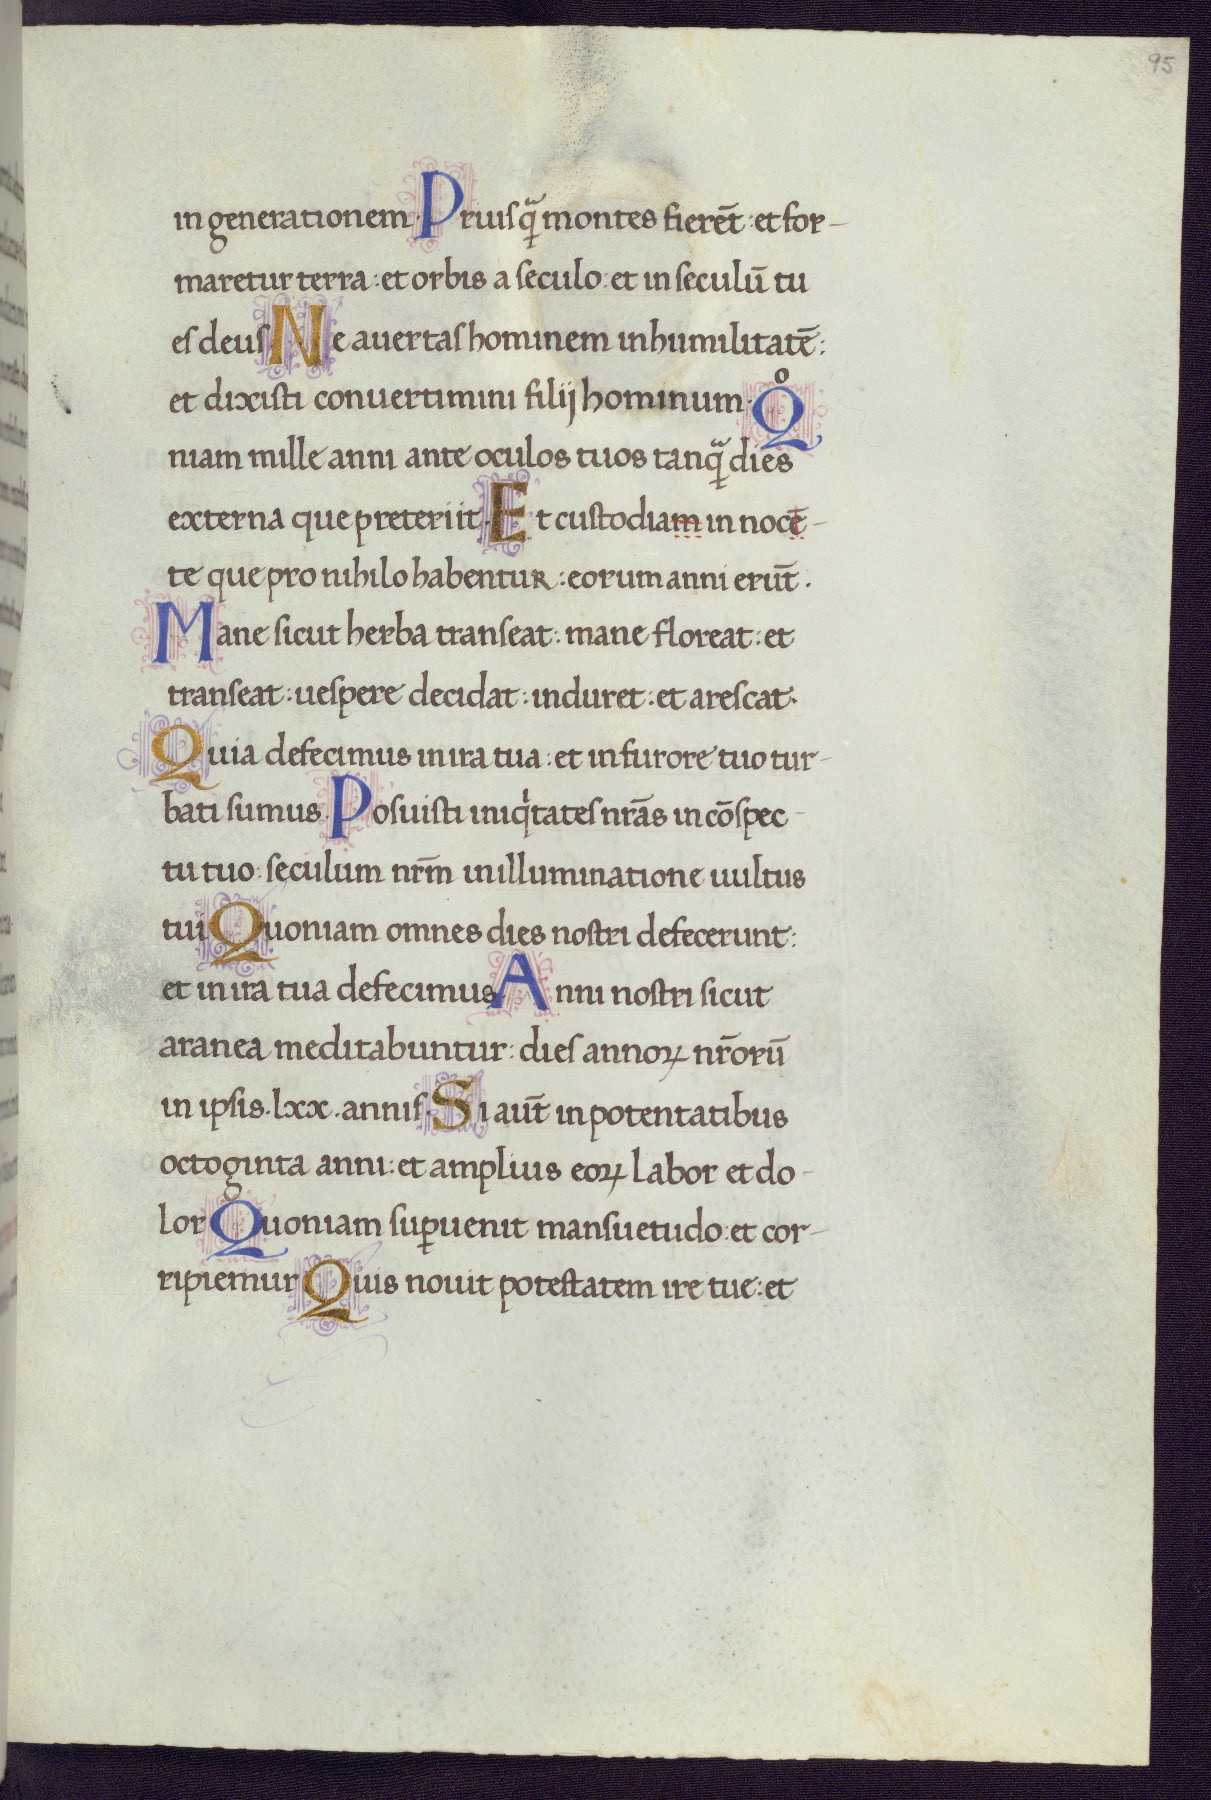 95
in generationem. Priusq̃ montes fierēt: et for-
maretur terra: et orbis a seculo: et in seculū tu
es deus. Ne auertas hominem in humilitatē:
et dixisti conuertimini filij hominum. Qo
niam mille anni ante oculos tuos tanq̃ dies
externa que preteriit. Et custodiam in nocē-
te que pro nihilo habentur: eorum anni erūt.
Mane sicut herba transeat: mane floreat: et
transeat: uespere decidat: induret: et arescat.
Quia defecimus in ira tua: et in furore tuo tur-
bati sumus. Posuisti iniqͥtates nr̄as in cōspec-
tu tuo: seculum nr̄m in illuminatione uultus
tui. Quoniam omnes dies nostri defecerunt:
et in ira tua defecimus. Anni nostri sicut
aranea meditabuntur: dies annoꝝ nr̄orū
in ipsis .lxx. annis. Si aūt in potentatibus
octoginta anni: et amplius eoꝝ labor et do-
lor. Quoniam suꝑuenit mansuetudo: et cor-
ripiemur. Quis nouit potestatem ire tue: et